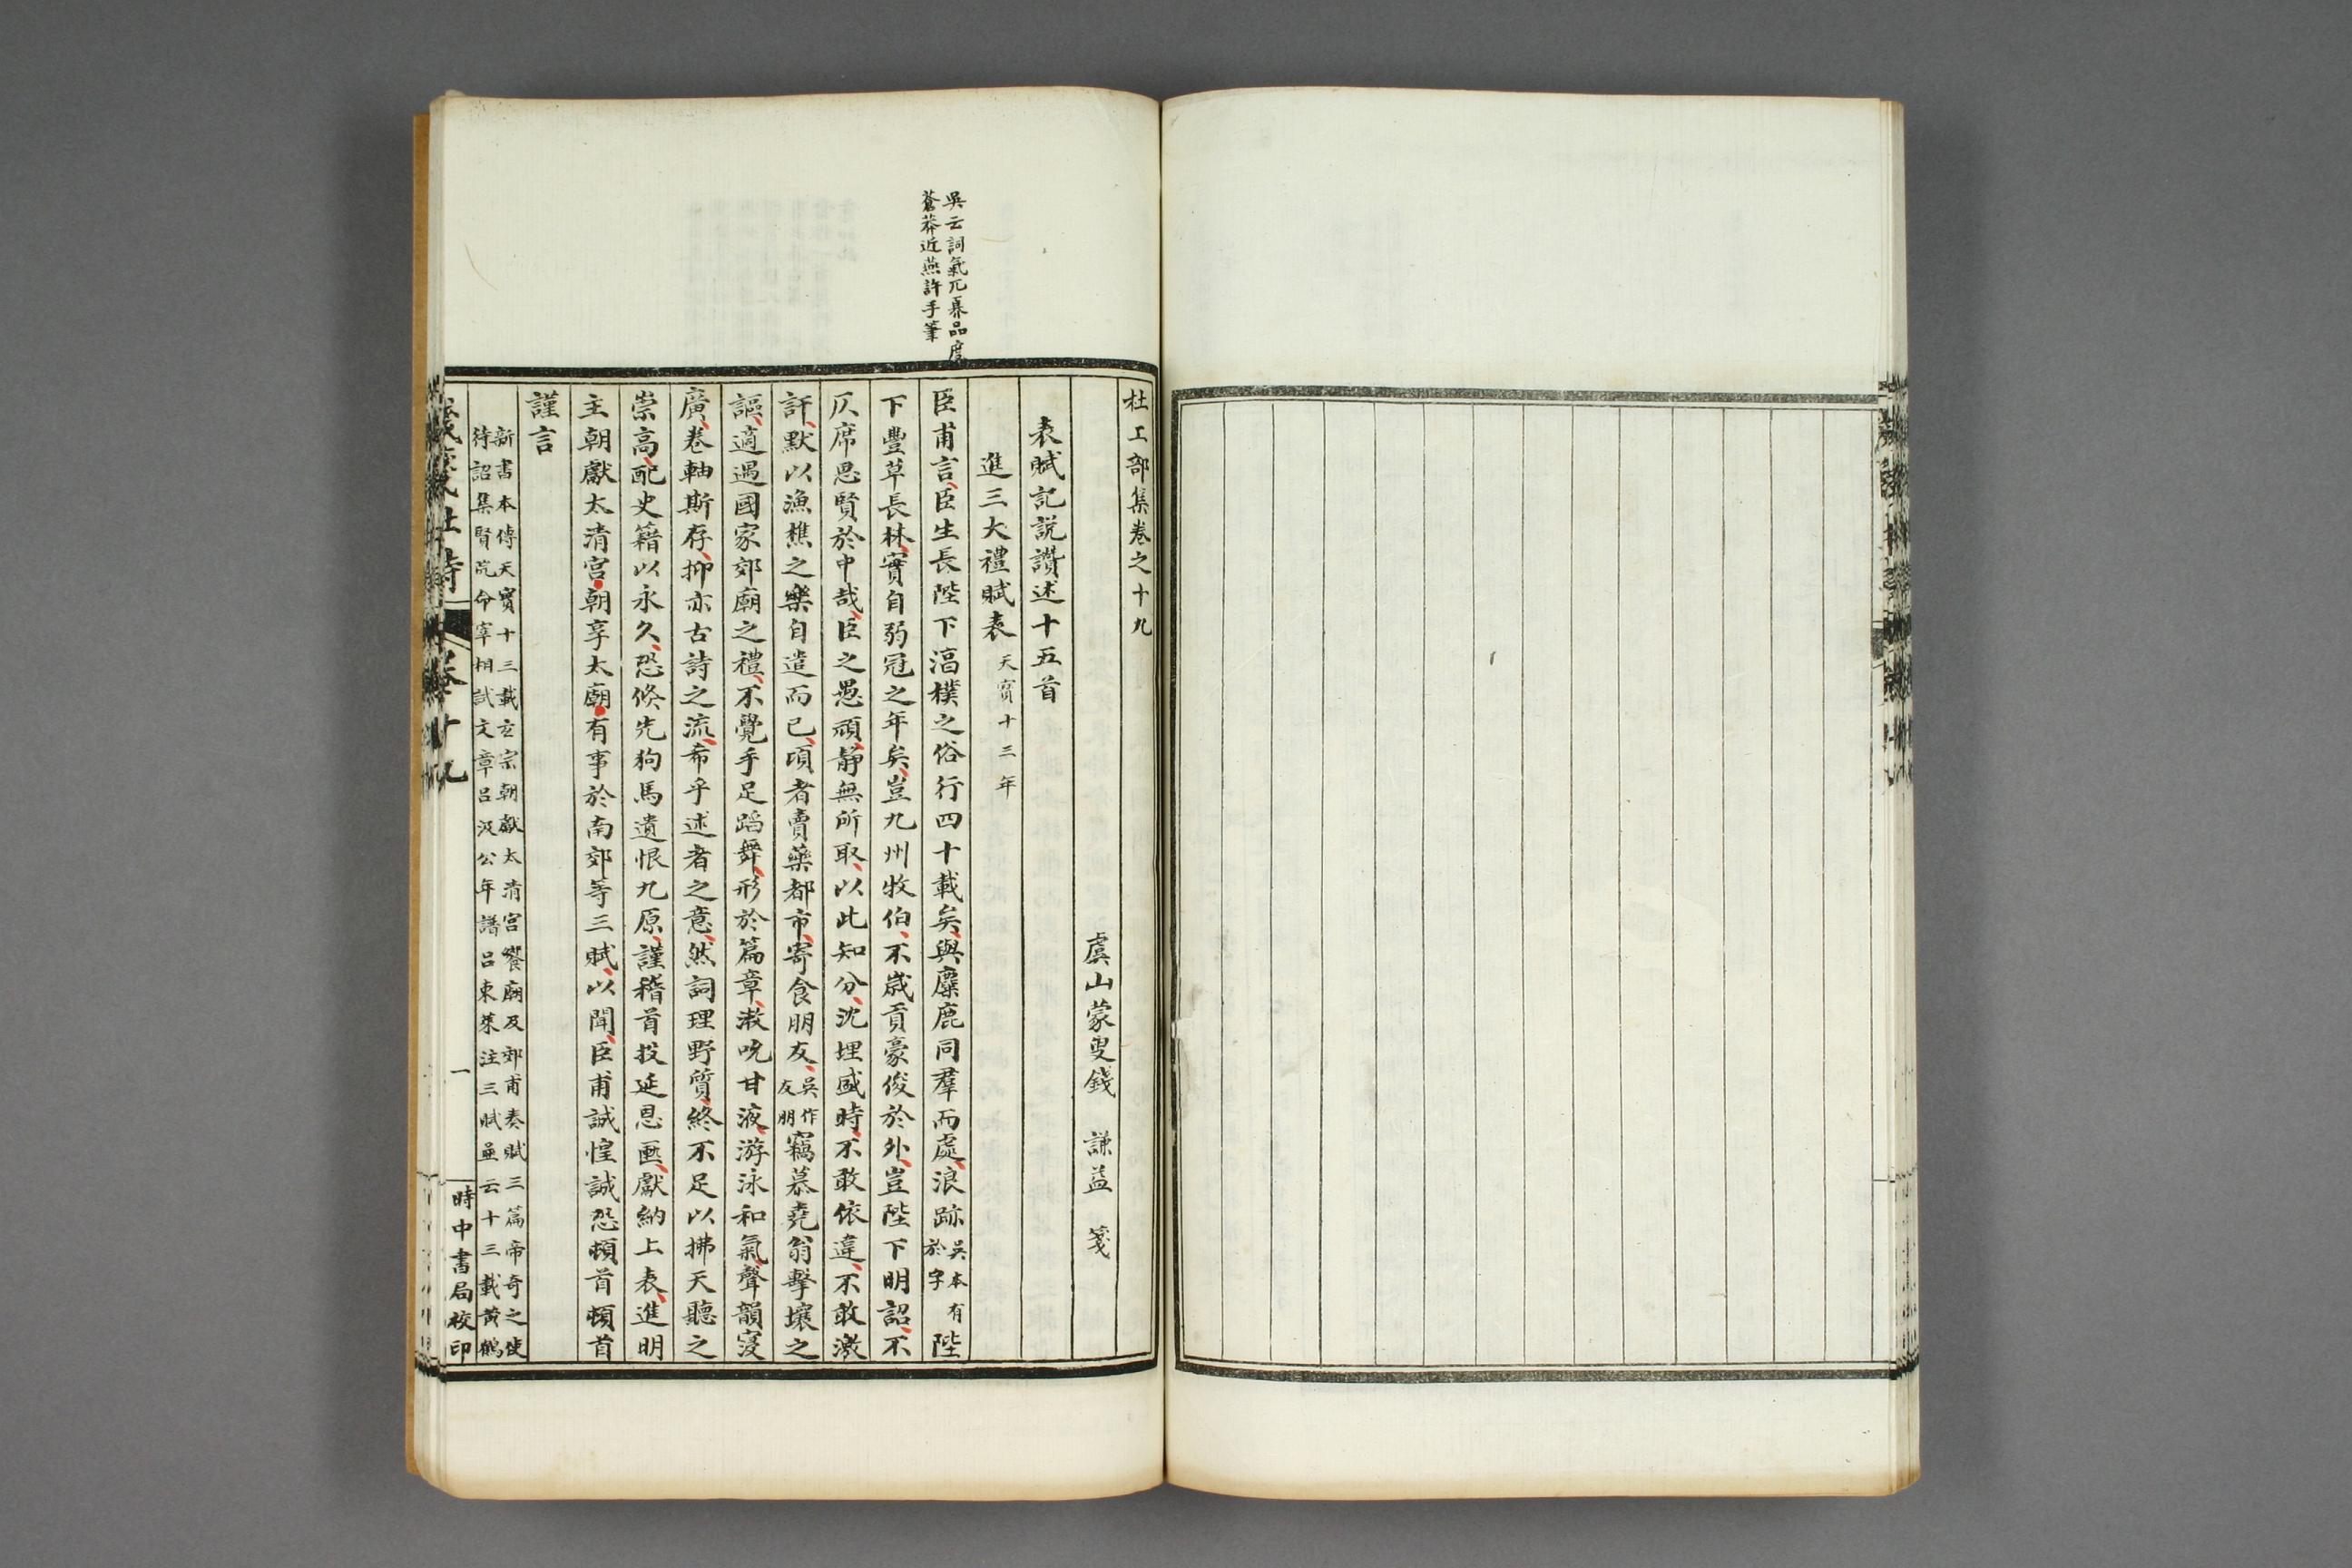 吳云詞氣兀奡品度
蒼莽近燕許手筆
杜工部集卷之十九
虞山蒙叟錢 謙益 箋
表賦記説讚述十五首
進三大禮賦表 天寶十三年
臣甫言臣生長陛下滀樸之俗行四十載矣與麋鹿同羣而處浪跡吳本有於字陛
下豐草長林實自弱冠之年矣豈九州牧伯不歲貢豪俊於外豈陛下明詔不
仄席思賢於中哉臣之愚頑靜無所取以此知分沈埋盛時不敢依違不敢激
訐默以漁樵之樂自遣而已頃者賣藥都市寄食朋友吳作友朋竊慕堯翁擊壤之
謳適遇國家郊廟之禮不覺手足蹈舞形於篇章漱吮甘液游泳和氣聲韻寖
廣卷軸斯存抑亦古詩之流希乎述者之意然詞理野質終不足以拂天聽之
崇高配史籍以永久恐倏先狗馬遺恨九原謹稽首投延恩匭獻納上表進明
主朝獻太清宮朝享太廟有事於南郊等三賦以聞臣甫誠惶誠恐頓首頓首
謹言
新書本傳天寶十三載玄宗朝獻太清宮饗廟及郊甫奏賦三篇帝奇之使
待詔集賢院命宰相試文章呂汲公年譜呂東萊注三賦並云十三載黃鶴
箋注杜詩 卷十九 一 時中書局校印